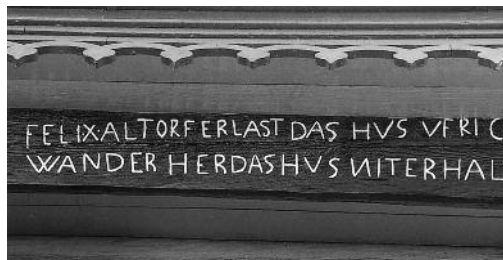 FELIX·ALTORFERLAST DAS HVS VFRIC
WANDER HERDAS HVS NITERHAL